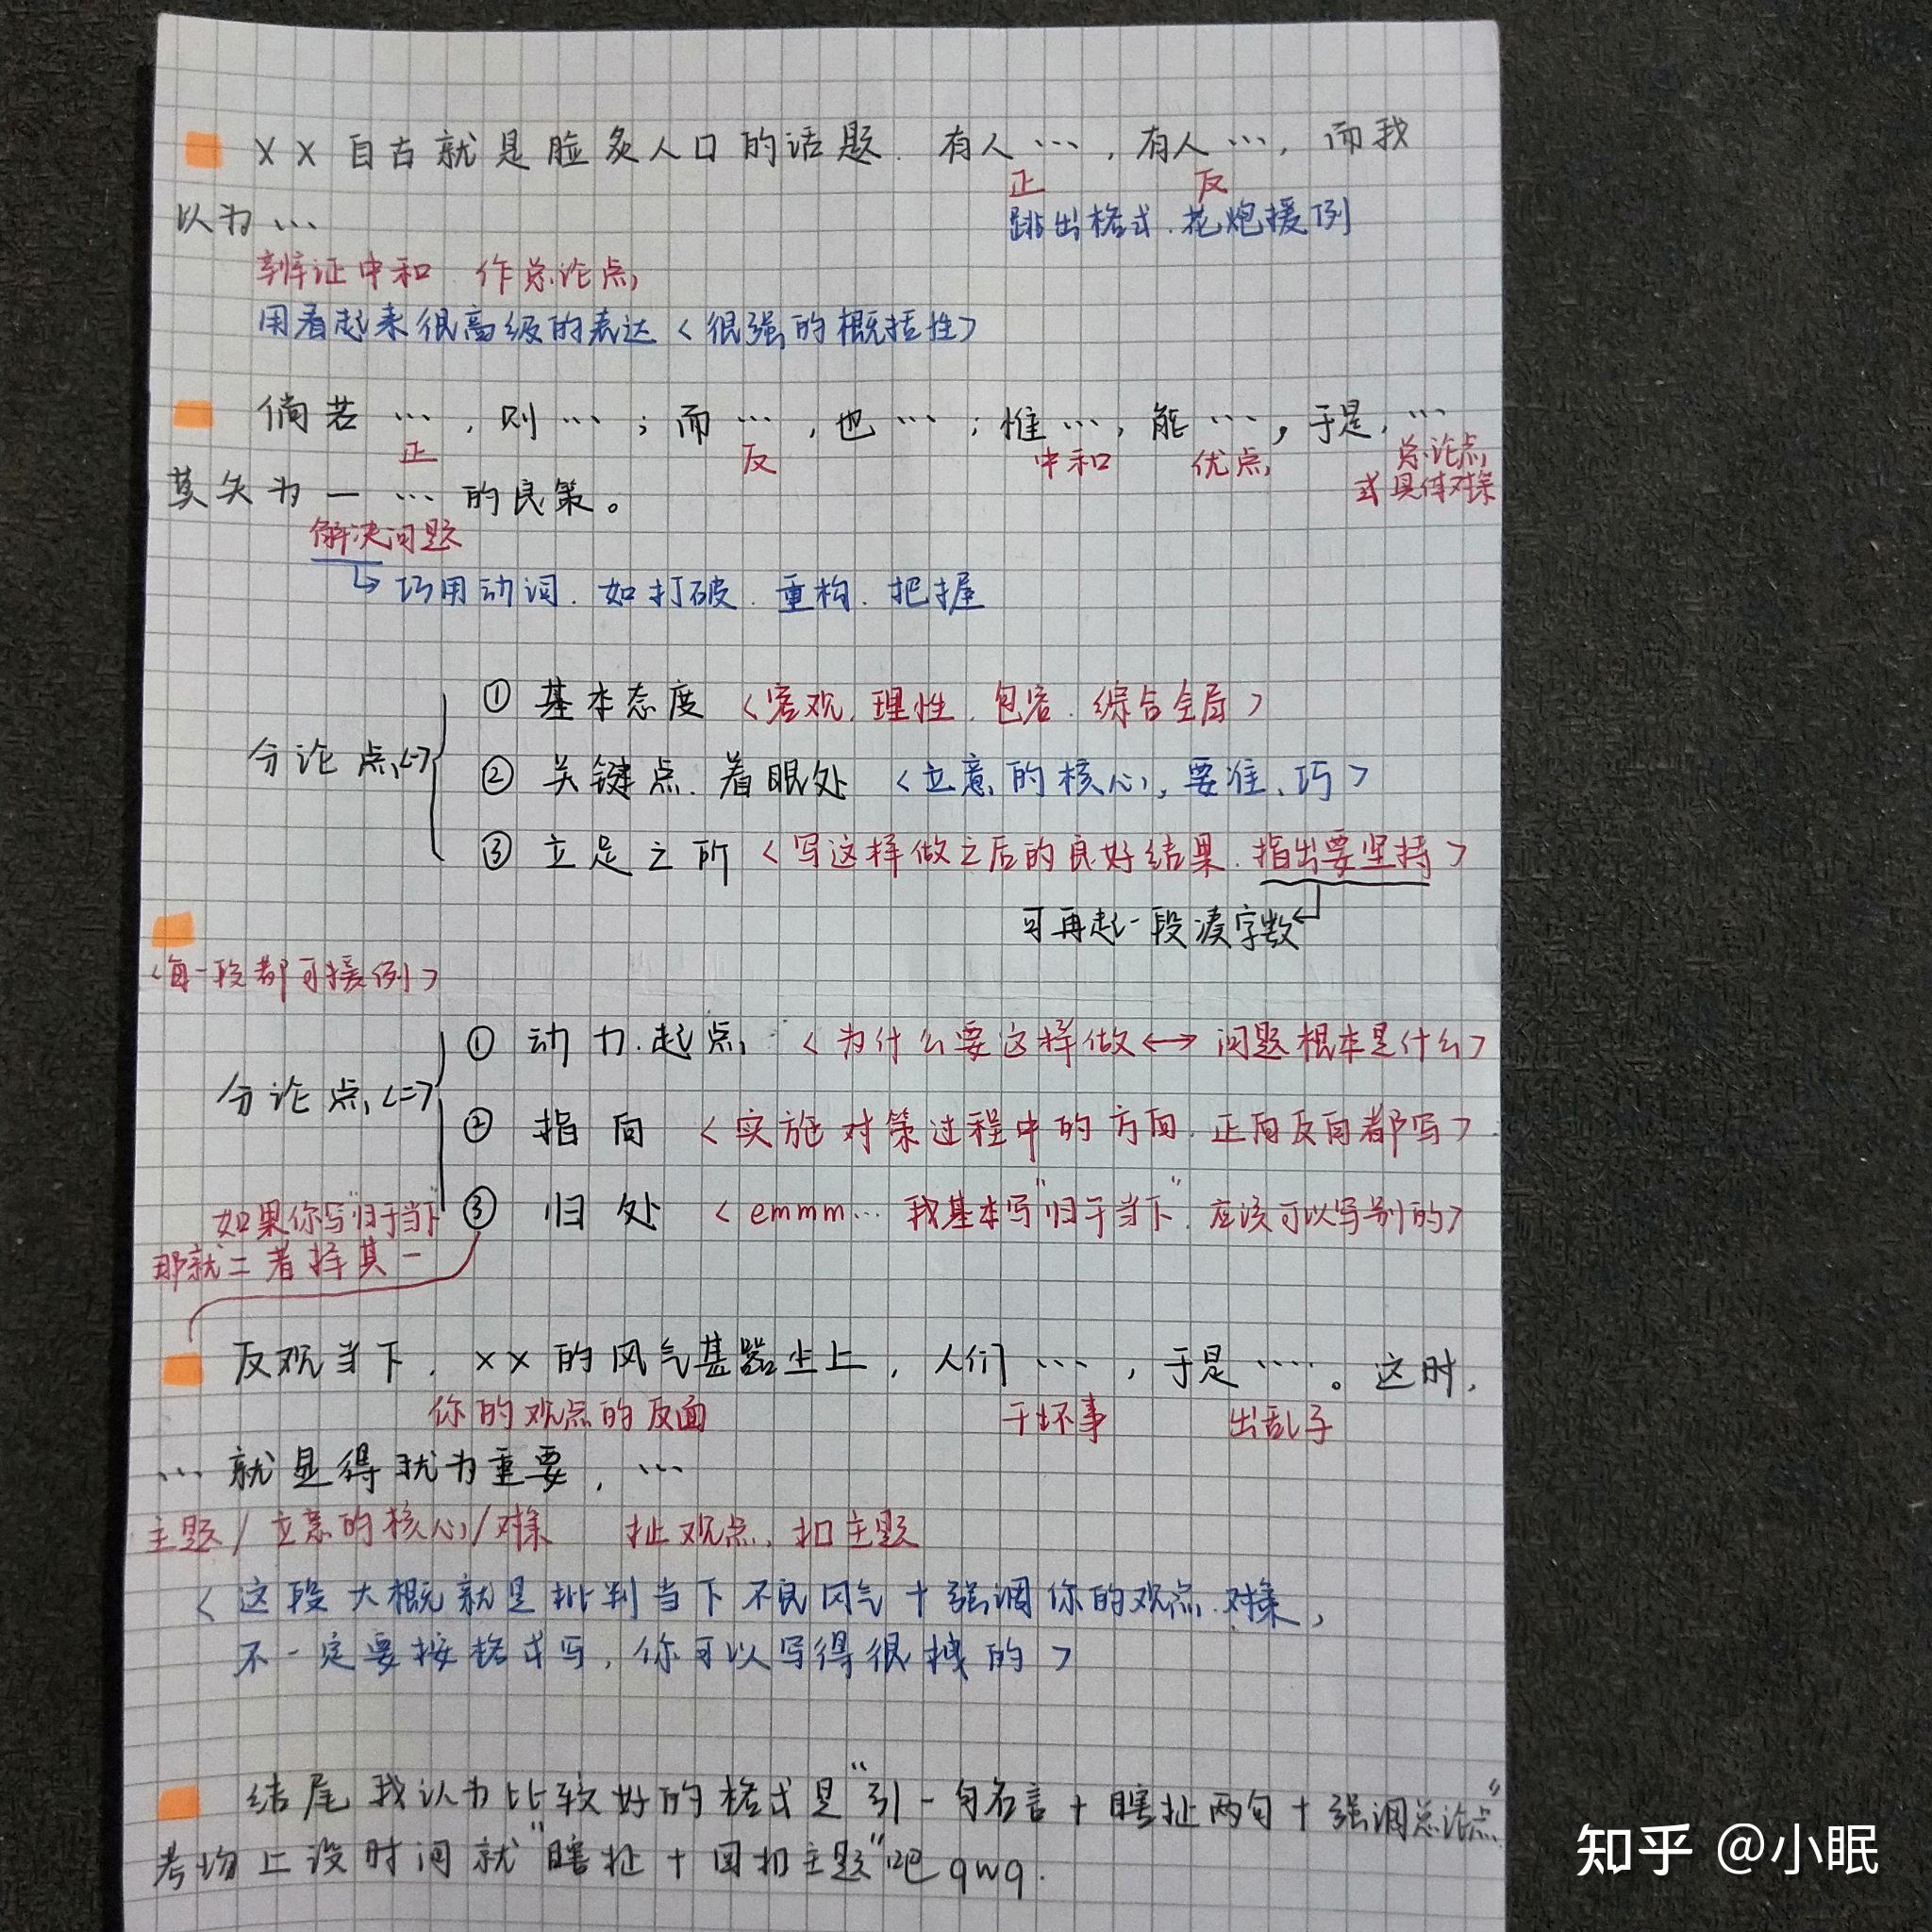 XX自古就是脍炙人口的话题．有人…，有人…，而我
正 反
以为… 跳出格式．花炮援例
辨证中和 作总论点，
用看起来很高级的表达〈很强的概括性〉
倘若…，则…；而…，也…；惟…，能…，于是，…
正 反 中和 优点， 总论点，
或具体对策
莫失为一…的良策。
解决问题
↳巧用动词．如打破．重构．把握
①基本态度〈客观．理性．包容．综合全局〉
分论点<-> ②关键点．着眼处〈立意的核心，要准、巧〉
③立足之所〈写这样做之后的良好结果．指出要坚持〉
可再起一段凑字数
〈每一段都可援例〉
①动力．起点，〈为什么要这样做<->问题根本是什么〉
分论点<=> ②指向〈实施对策过程中的方向．正向反向都写〉
③归处〈emmm…我基本写"归于当下"．应该可以写别的〉
如果你写"归于当下"
那就二者择其一
反观当下，XX的风气甚嚣尘上，人们…，于是……。这时，
你的观点的反面 干坏事 出乱子
…就显得犹为重要，…
主题/立意的核心/对策 扯观点、扣主题
〈这段大概就是批判当下不良风气+强调你的观点．对策，
不一定要按格式写，你可以写得很拽的〉
结尾我认为比较好的格式是"引一句名言+瞎扯两句+强调总论点"
考场上没时间就"瞎扯+回扣主题"吧qwq.
知乎 @小眠